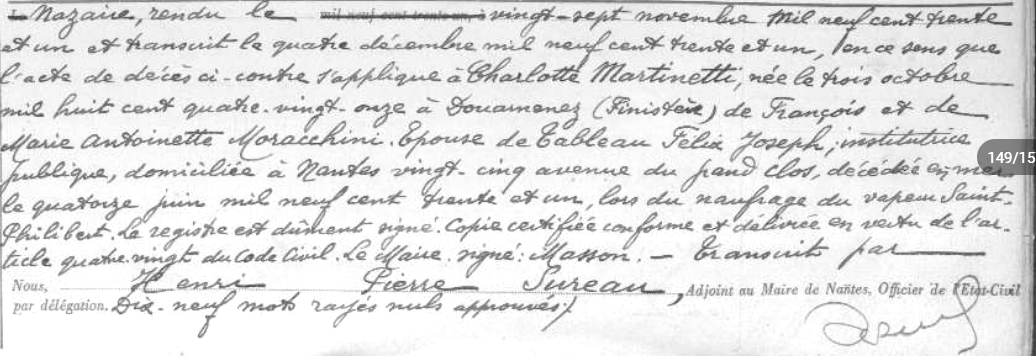 Nazaire, rendu le mil neuf cent trente un, à vingt-sept novembre mil neuf cent trente
et un et transcrit le quatre décembre mil neuf cent trente et un, en ce sens que
l'acte de décès ci-contre s'applique à Charlotte Martinetti, née le trois octobre
mil huit cent quatre-vingt-onze à Douarnenez (Finistère) de François et de
Marie Antoinette Moracchini. Epouse de Tableau Félix Joseph, institutrice
publique, domiciliée à Nantes vingt-cinq avenue du grand clos, décédée en mer,
149/15
le quatorze juin mil neuf cent trente et un, lors du naufrage du vapeur Saint-
Philibert. Le registre est dûment signé. Copie certifiée conforme et délivrée en vertu de l'ar-
ticle quatre-vingt du Code Civil. Le Maire, signé: Masson. — Transcrit par
Nous, Henri Pierre Sureau, Adjoint au Maire de Nantes, Officier de l'Etat-Civil
par délégation. Dix-neuf mots rayés nuls approuvés./